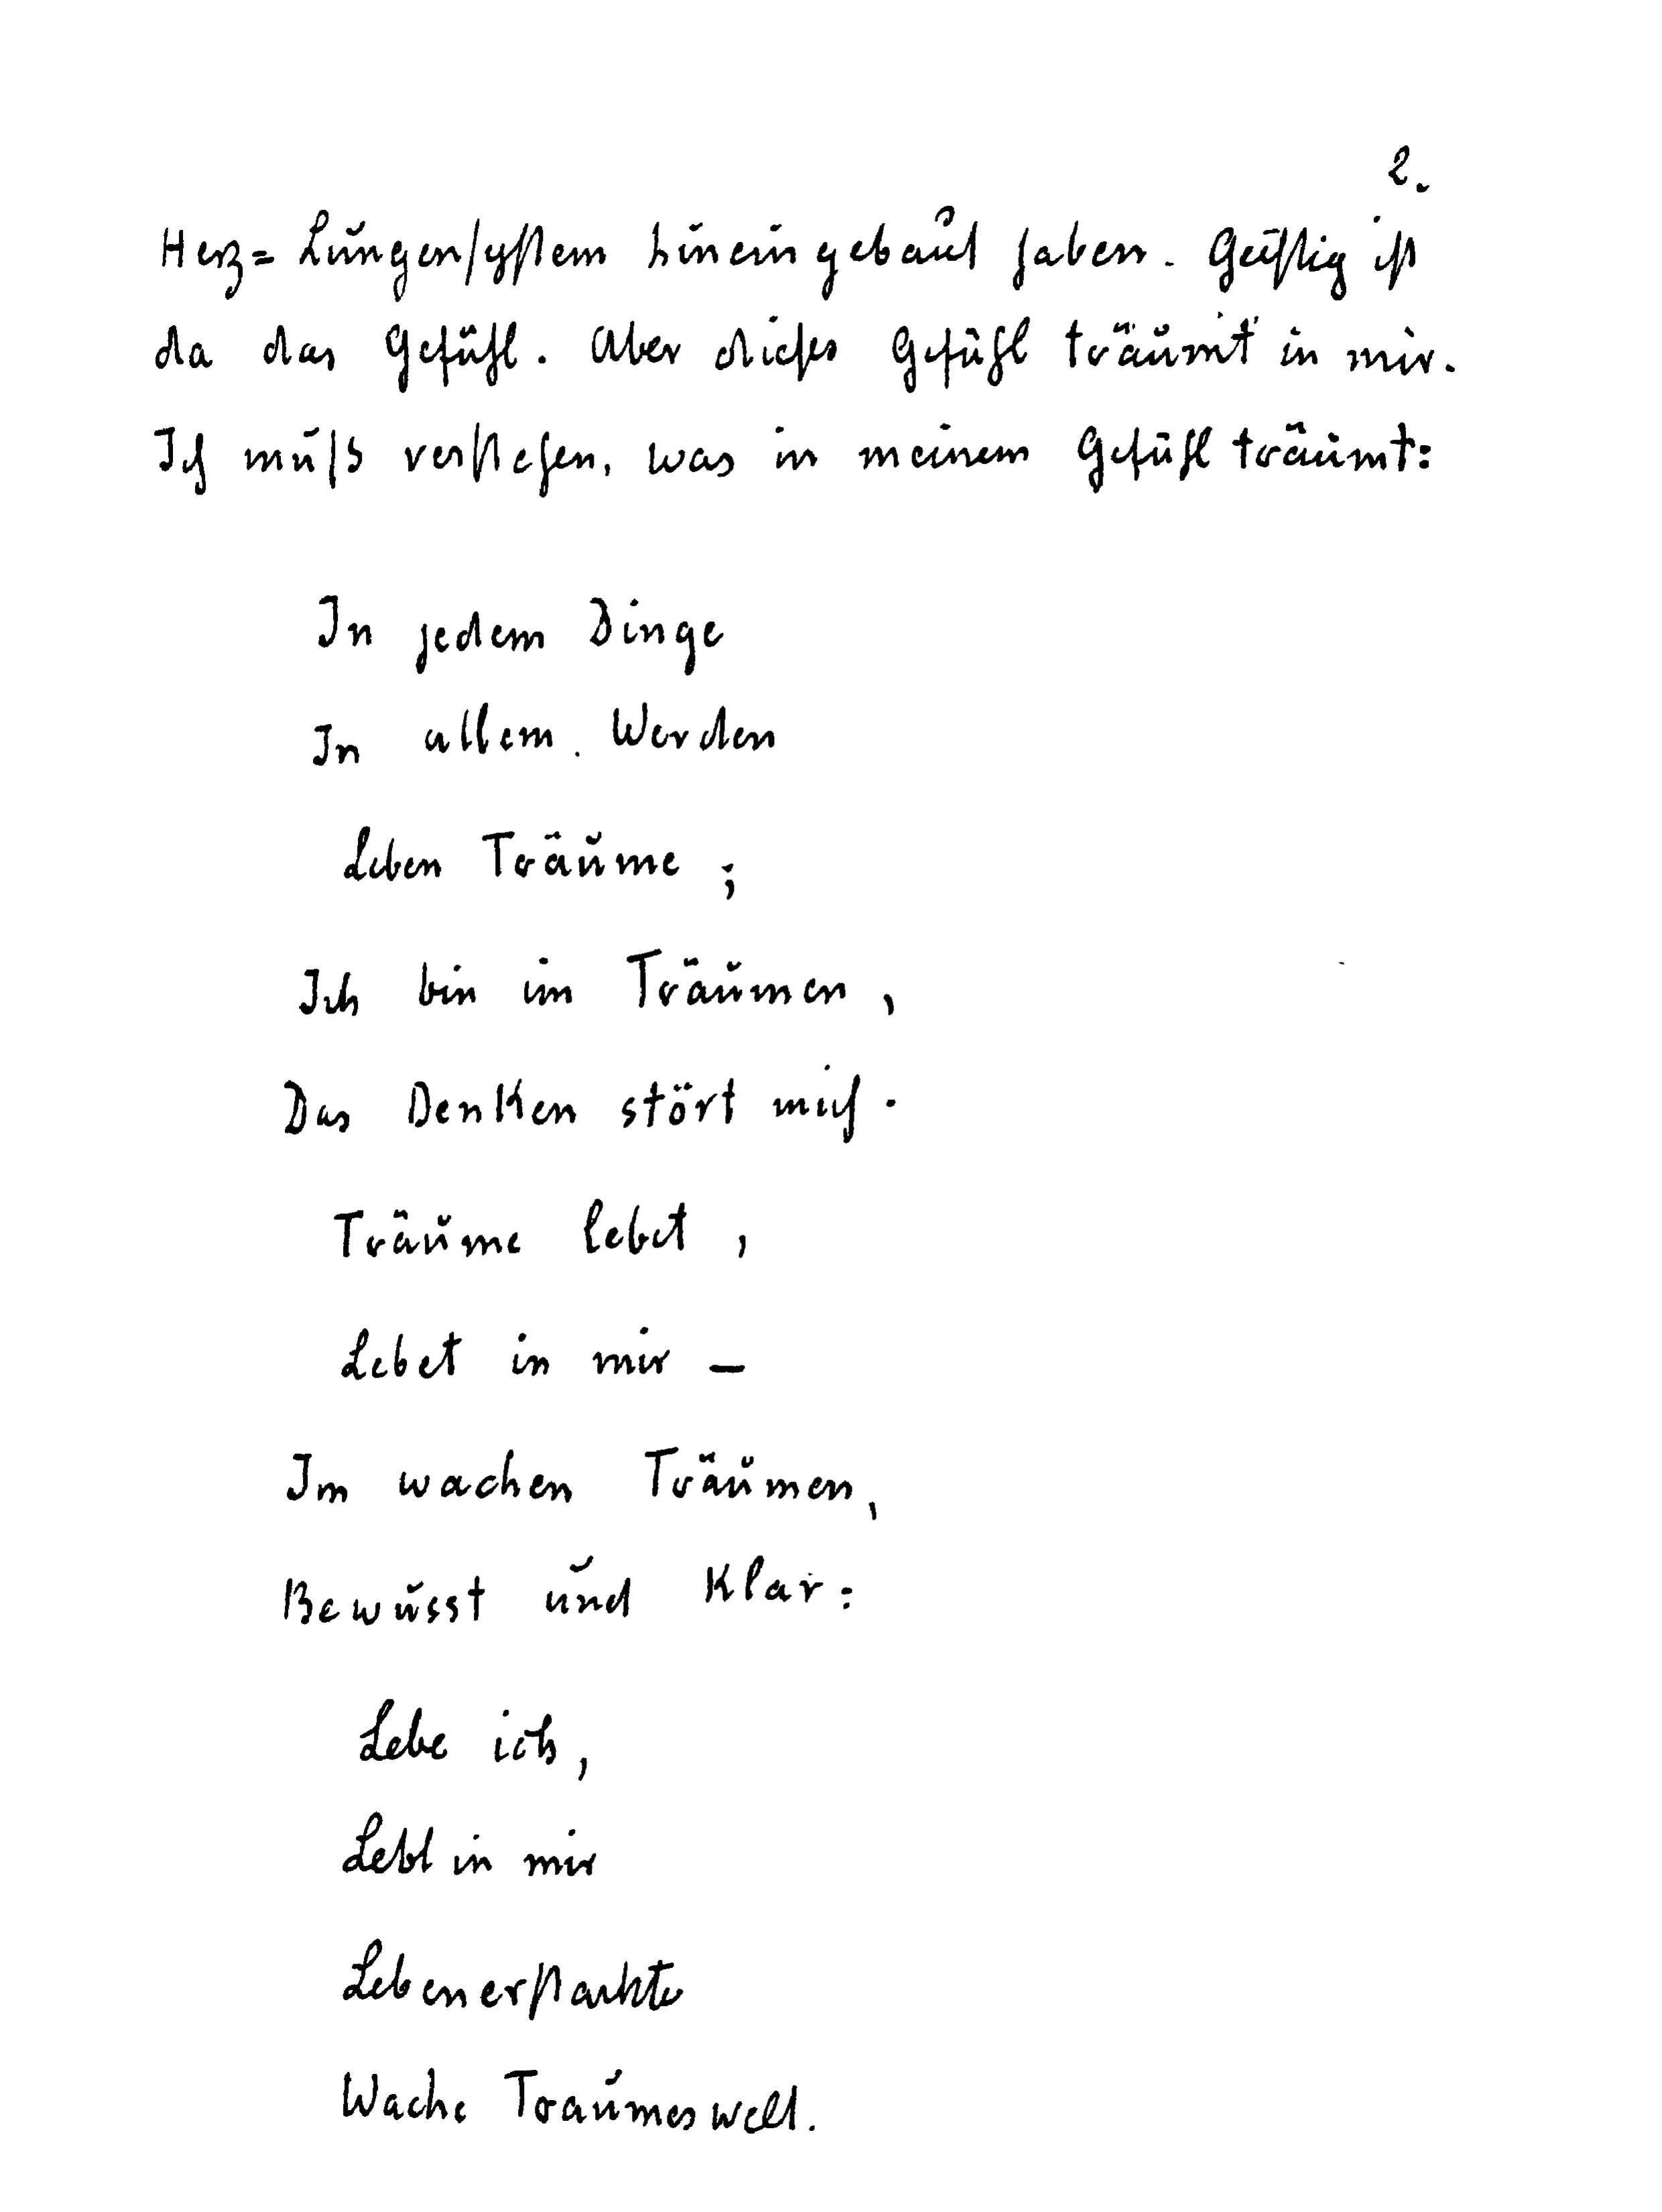 2.
Herz= Lungensystem hineingebaut haben. Geistig ist
da das Gefühl. Aber dieses Gefühl träumt in mir.
Ich muß verstehen, was in meinem Gefühl träumt:
In jedem Dinge
In allem Werden
Leben Träume;
Ich bin im Träumen,
Das Denken stört mich.
Träume lebet,
Lebet in mir –
Im wachen Träumen,
Bewusst und Klar:
Lebe ich,
Lebt in mir
Lebenerstarkte
Wache Traumeswelt.